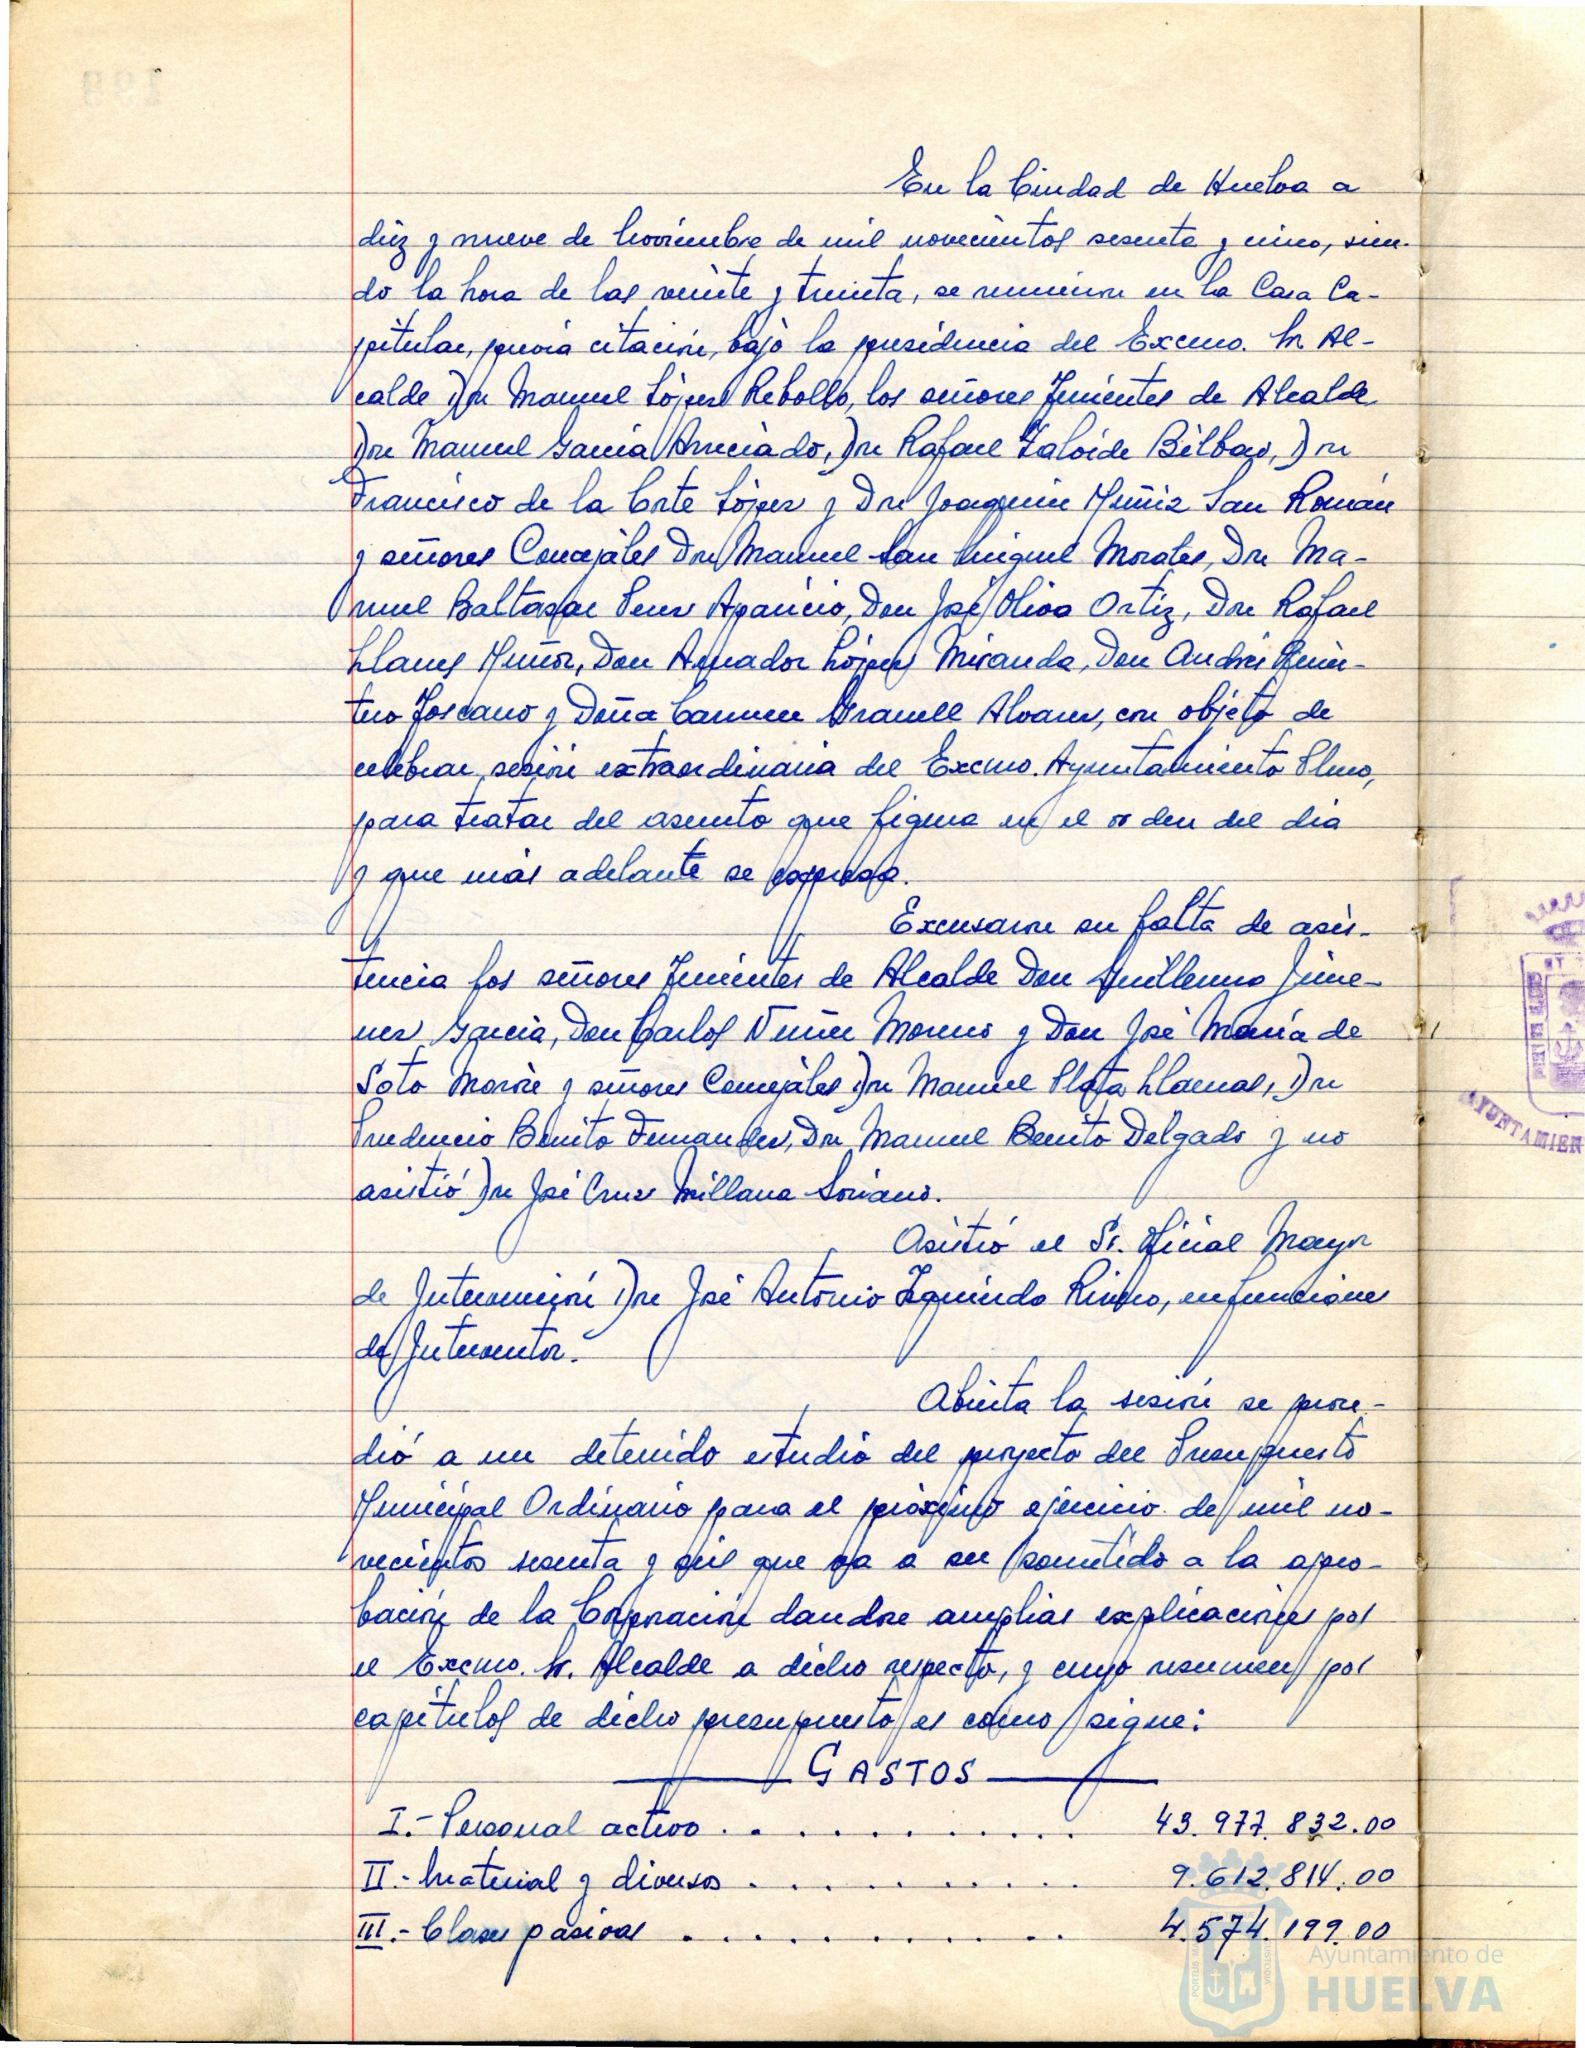 En la Ciudad de Huelva a
diez y nueve de Noviembre de mil novecientos sesenta y cinco, sien-
do la hora de las veinte y treinta, se reunieron en la Casa Ca-
pitular, previa citación, bajo la presidencia del Excmo. Sr Al-
calde Don Manuel López Rebollo, los señores Tenientes de Alcalde
Don Manuel García Arreciado, Don Rafael Zalvide Bilbao, Don
Francisco de la Corte López y Don Joaquin Muñiz San Román
y señores Concejales Don Manuel San Miguel Morales, Don Ma-
nuel Baltasar Perez Aparicio, Don José Oliva Ortiz, Don Rafael
Llanes Muñoz, Don Amador López Miranda, Don Andrés Quin-
tero Toscano y Doña Carmen Granell Alvarez, con objeto de
celebrar sesión extraordinaria del Excmo. Ayuntamiento Pleno,
para tratar del asunto que figura en el orden del dia
y que más adelante se expresa.
Excusaron su falta de asis-
tencia los señores Tenientes de Alcalde Don Guillermo Jime-
nez García, Don Carlos Nuñez Moreno y Don José María de
Soto Morón y señores Concejales Don Manuel Plata Llamas, Don
Prudencio Benito Fernandez, Don Manuel Benito Delgado y no
asistió Don José Cruz Millana Soriano.
Asistió el Sr. Oficial Mayor
de Intervención Don José Antonio Izquierdo en funciones
de Interventor.
Abierta la sesión se proce-
dió a un detenido estudio del proyecto del Presupuesto
Municipal Ordinario para el próximo ejercicio de mil no-
vecientos sesenta y seis que va a ser sometido a la apro-
bación de la Corporación dandose amplias explicaciones por
el Excmo. Sr. Alcalde a dicho respecto, y cuyo resumen por
capitulos de dicho presupuesto es como sigue:
GASTOS
I.- Personal activo . . . . . . . . . . 43.977.832.00
II.- Material y diversos . . . . . . . . . 9.612.814.00
III.- Clases pasivas . . . . . . . . . . 4.574.199.00
AYUNTAMIEN
Ayuntamiento de
HUELVA